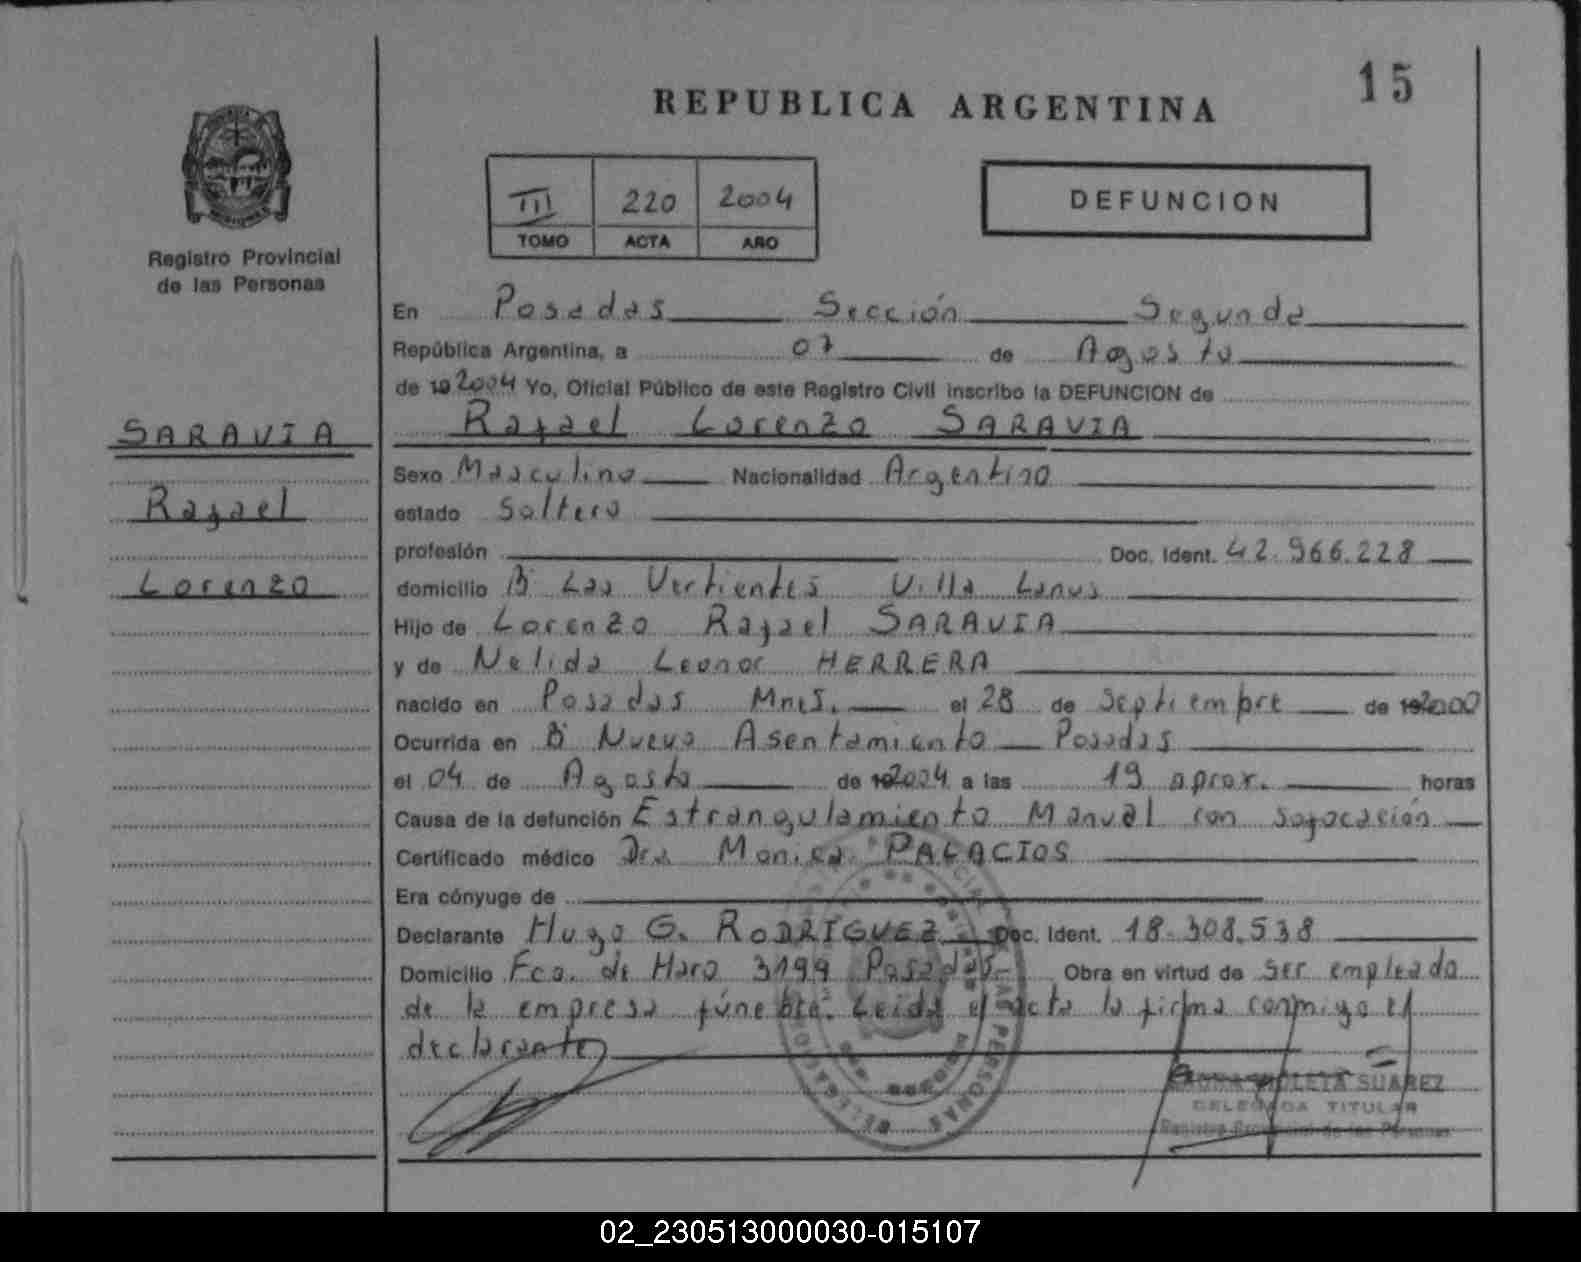 15
REPUBLICA ARGENTINA
III 220 2004
TOMO ACTA AÑO
DEFUNCION
Registro Provincial
de las Personas
SARAVIA
Rafael
Lorenzo
En Posadas Sección Segunda
República Argentina, a 07 de Agosto
de 19 2004 Yo, Oficial Público de este Registro Civil inscribo la DEFUNCION de
Rafael Lorenzo SARAVIA
Sexo Masculino Nacionalidad Argentino
estado Soltero
profesión Doc. Ident. 42.966.228
domicilio Bº Las Vertientes Villa Lanus
Hijo de Lorenzo Rafael SARAVIA
y de Nelida Leonor HERRERA
nacido en Posadas Mnes. el 28 de Septiembre de 19 2000
Ocurrida en Bº Nuevo Asentamiento Posadas
el 04 de Agosto de 19 2004 a las 19 aprox. horas
Causa de la defunción Estrangulamiento Manual con sofocación
Certificado médico Dra. Monica PALACIOS
Era cónyuge de
Declarante Hugo G. RODRIGUEZ Doc. Ident. 18.308.538
Domicilio Fco. de Haro 3199 Posadas Obra en virtud de ser empleado
de la empresa fúnebre. Leida el acta la firma conmigo el
declarante
VIOLETA SUAREZ
DELEGADA TITULAR
Registro Provincial de las Personas
02_230513000030-015107